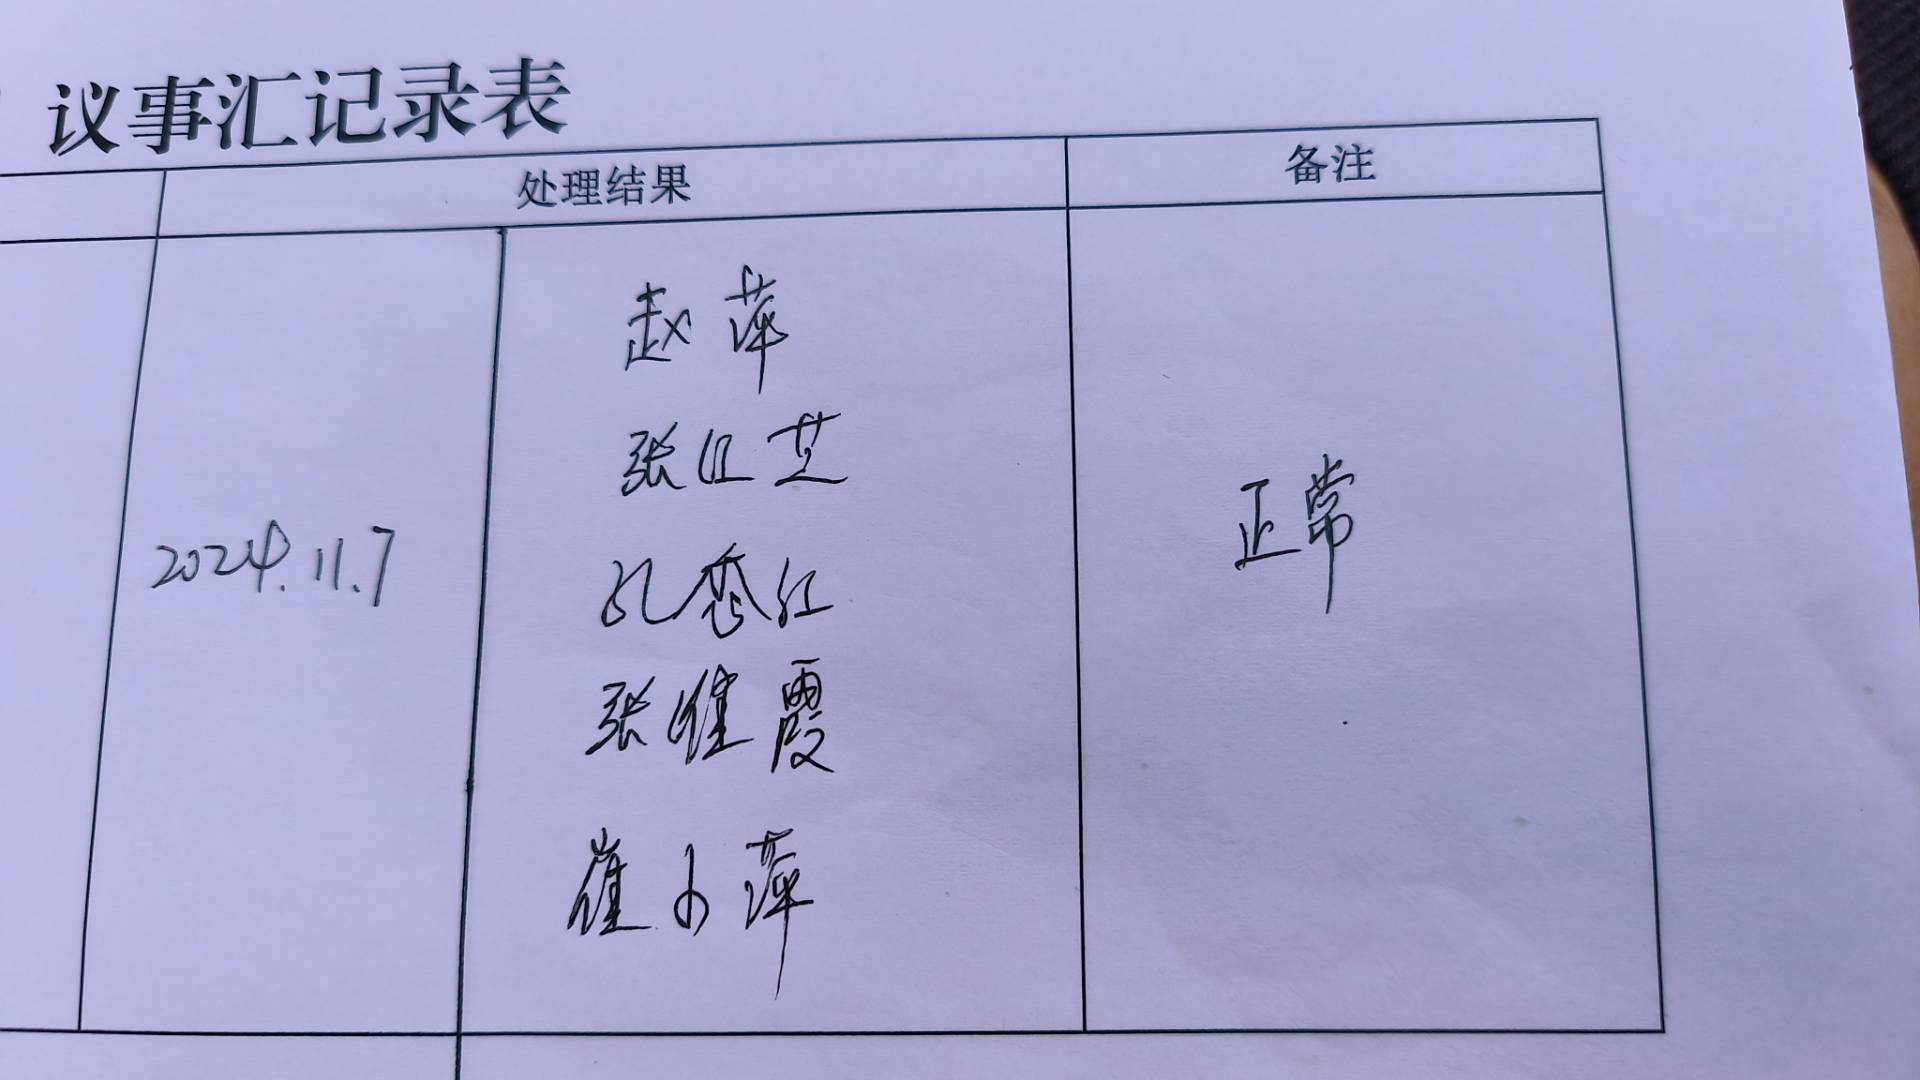 议事汇记录表
处理结果
备注
2024.11.7
赵萍
张红芝
孔香红
张维霞
崔小萍
正常